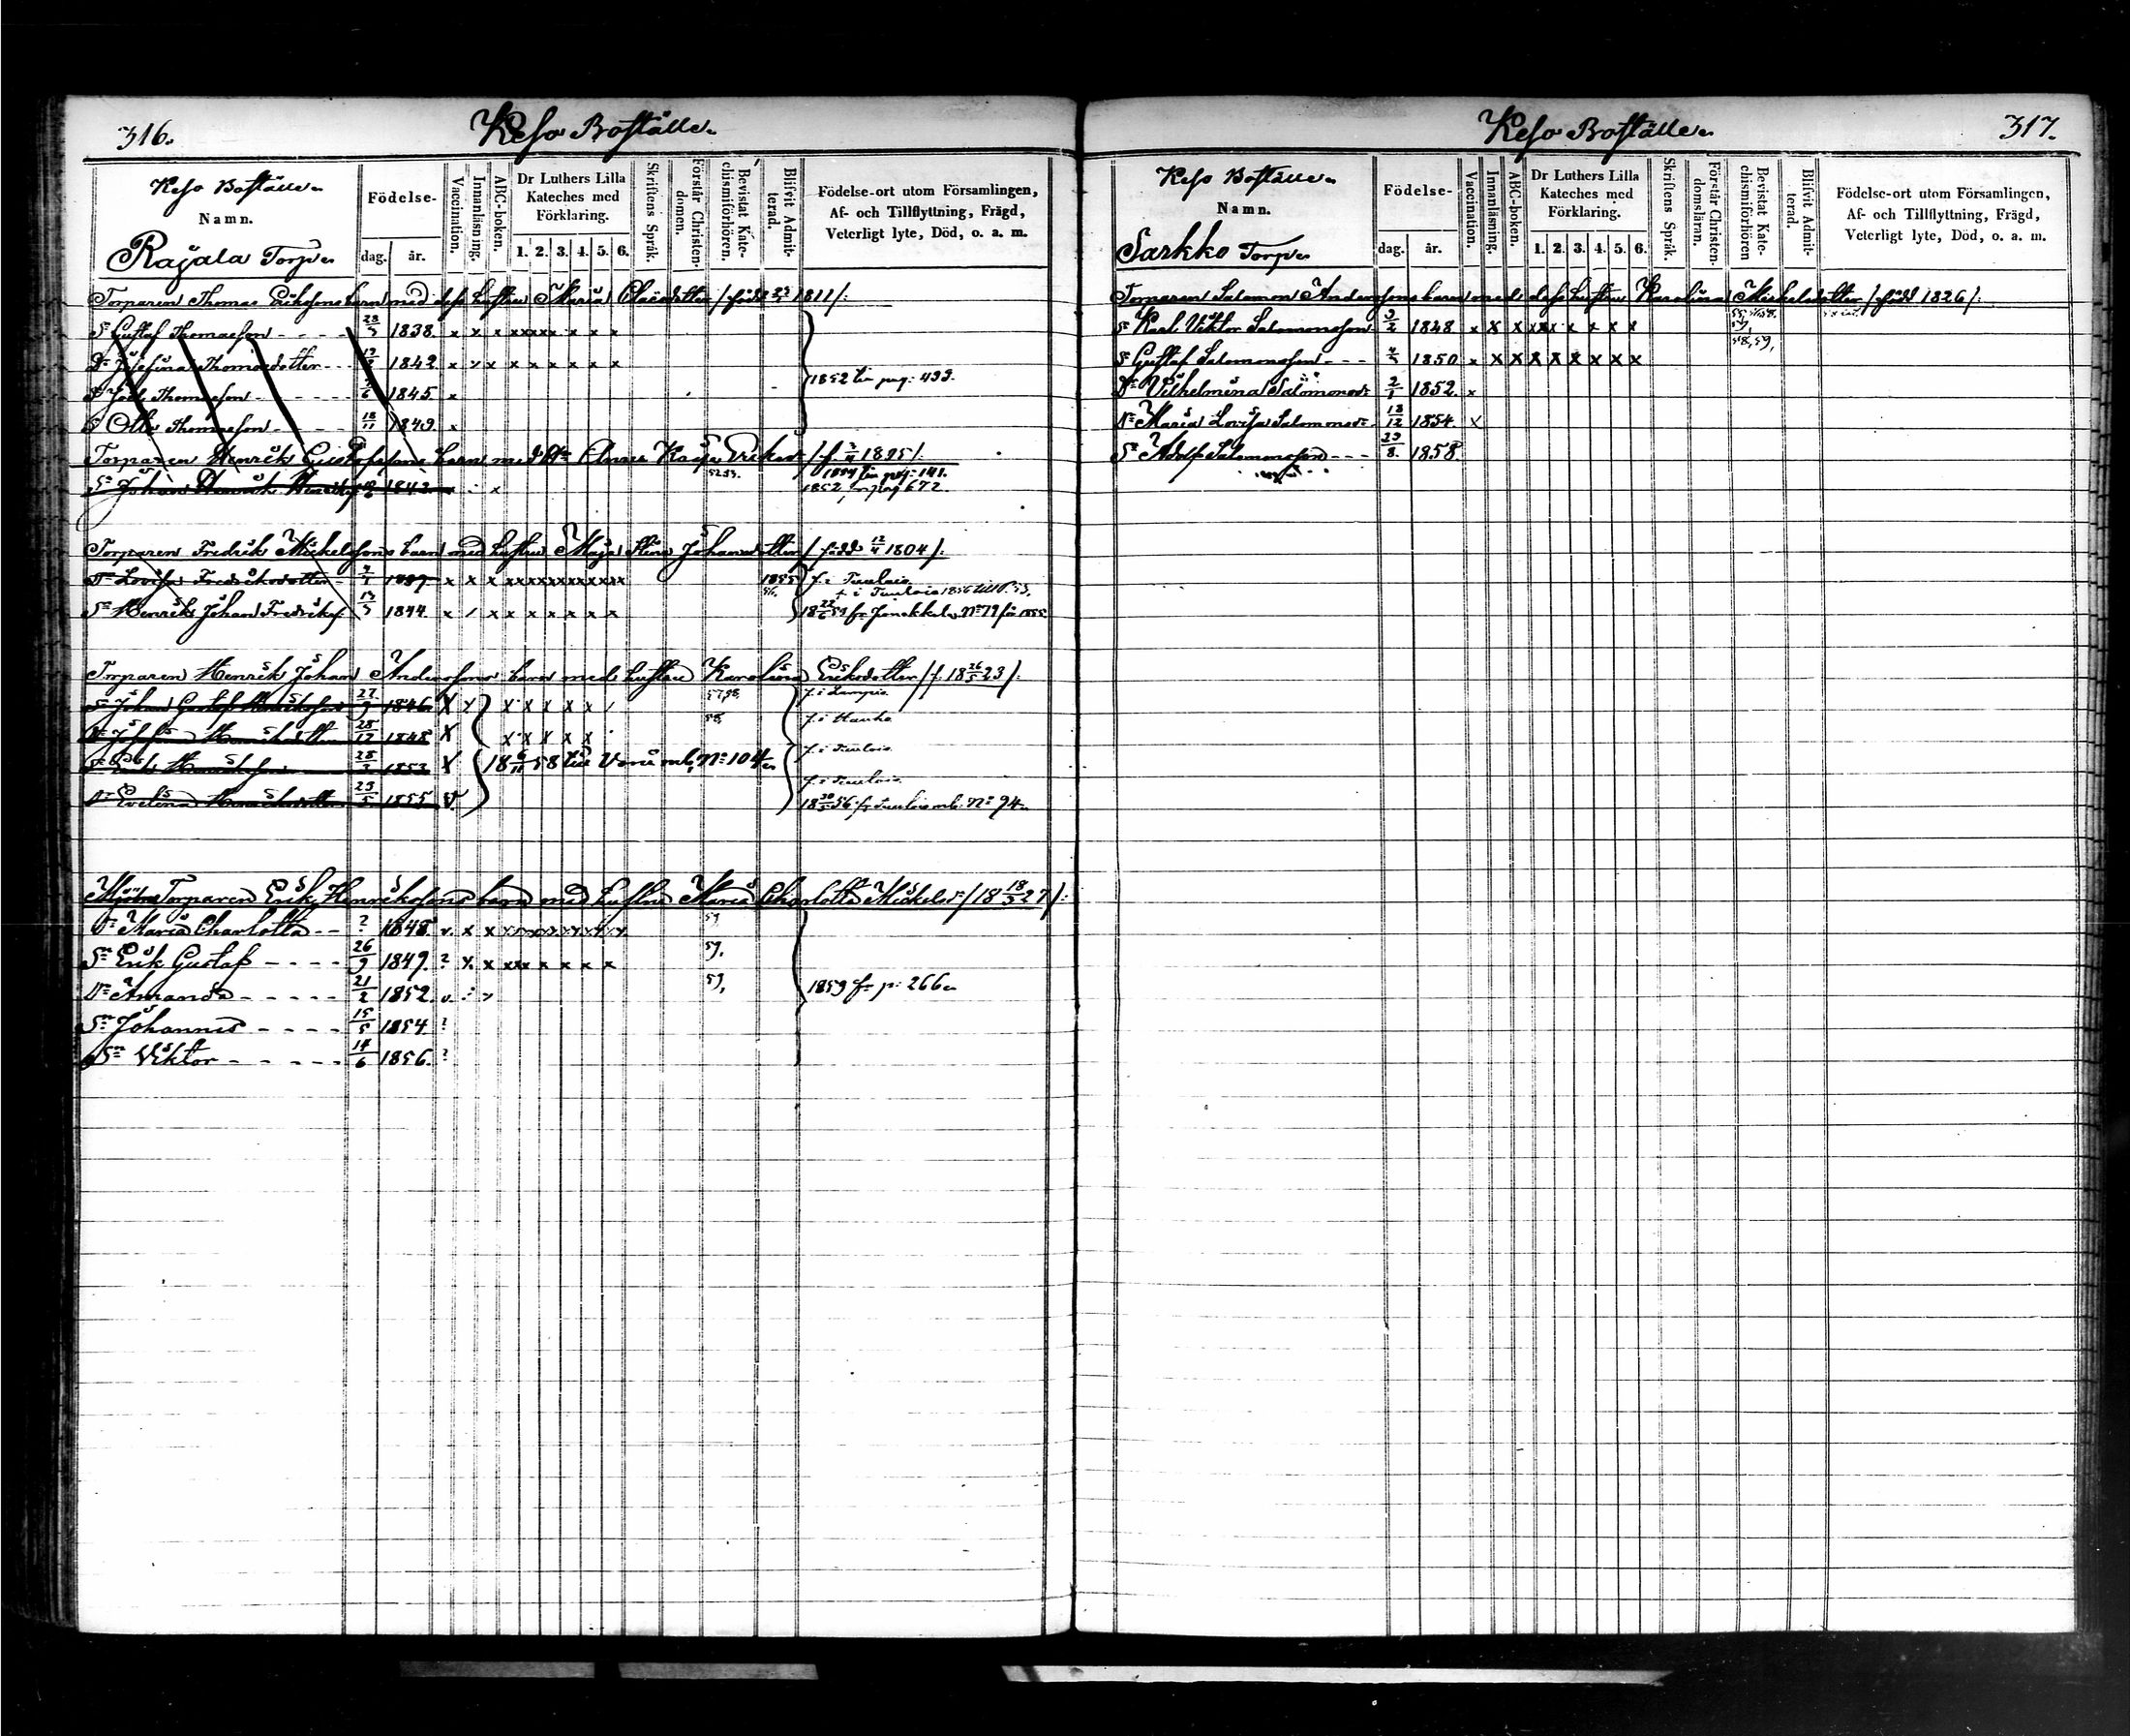 316.
Keso Boställe
Keso Boställe
Namn.
Rajala Torp
Födelse-
dag. år.
Vaccination.
Innanläsning.
ABC-boken.
Dr Luthers Lilla Kateches med Förklaring.
1. 2. 3. 4. 5. 6.
Skriftens Språk.
Förstår Christendomen.
Bevistat Katechismiförhören.
Blifvit Admitterad.
Födelse-ort utom Församlingen,
Af- och Tillflyttning, Frägd,
Veterligt lyte, Död, o. a. m.
Torparen Thomas Erikssons barn med dess hustru Maria född 1811/:
Sn Gustaf Thomasson - - - 28/5 1838. x x x x x x x x x x x
Dr Josefina Thomasdotter - - 1842 x x x x x x x x x
Sn Joel Thomasson - - - 1845 x 1852 till pag: 433.
Sn Otto Thomasson - - - 18/11 1849. x
Torparen Henrik Gustafssons barn med Anna Kaisa Eriksd:
Sn Johan Henrik 1843 x 52.53. till pag: 141.
1852 pag 672.
Torparen Fredrik Mickelssons barn med hustru Maja Stina Johansdotter / född 12/4 1804/:
Dr Lovisa Fredriksdotter - x x x x x x x x x x x x x 1855 f. i Tuulois
56. i Tuulois 1856
Sn Henrik Johan Fredriks 13/5 1844. x / x x x x x x x 18 22/6 59 fr Janakkala No 79 för 1855
Torparen Henrik Johan Anderssons barn med hustru Karolina Eriksdotter /f. 18 26/5 23/:
Sn Johan Gustaf Henriksson 1846 X x x x x x x / 57,58, f. i Lampis
Dr Josefina Henriksdotter 28/12 1848 X x x x x x 58, f. i Hauho
Sn Erik Henriksson 1853 X 18 6/11 58 till mb, No 104 f. i Tuulois
f. i Tuulois
Dr Evelina Henriksdotter 23/5 1855 v. 18 30/5 56 fr Tuulois mb. No 94
Torparen Erik Henrikssons barn med hustru Maria Charlotta Mickelsdr /18 18/5 27/:
Dr Maria Charlotta - - ? 1848. v. x x x x x x x x x x x 59
Sn Erik Gustaf - - - - 26/9 1849. ? x x x x x x x x x 59,
Dr Amanda - - - - - 21/2 1852. v. 59, 1859 fr p: 266
Sn Johannes - - - - 15/5 1854. ?
Sn Viktor - - - - - 14/6 1856. ?
Keso Boställe
317.
Keso Boställe
Namn.
Sarkko Torp
Födelse-
dag. år.
Vaccination.
Innanläsning.
ABC-boken.
Dr Luthers Lilla Kateches med Förklaring.
1. 2. 3. 4. 5. 6.
Skriftens Språk.
Förstår Christendomsläran.
Bevistat Katechismiförhören
Blifvit Admitterad.
Födelse-ort utom Församlingen,
Af- och Tillflyttning, Frägd,
Veterligt lyte, Död, o. a. m.
Torparen Salomon Anderssons barn med dess hustru Karolina Mickelsdotter / född 1826/:
Sn Karl Viktor Salomonsson 3/2 1848 x x x x x x x x x x
Sn Gustaf Salomonsson - - - 1850 x x x x x x x x x 58,59,
Dr Vilhelmina Salomonsd: 2/1 1852. x
Dr Maria Lovisa Salomonsd: 18/12 1854. x
Sn Adolf Salomonsson - - - 23/8. 1858.